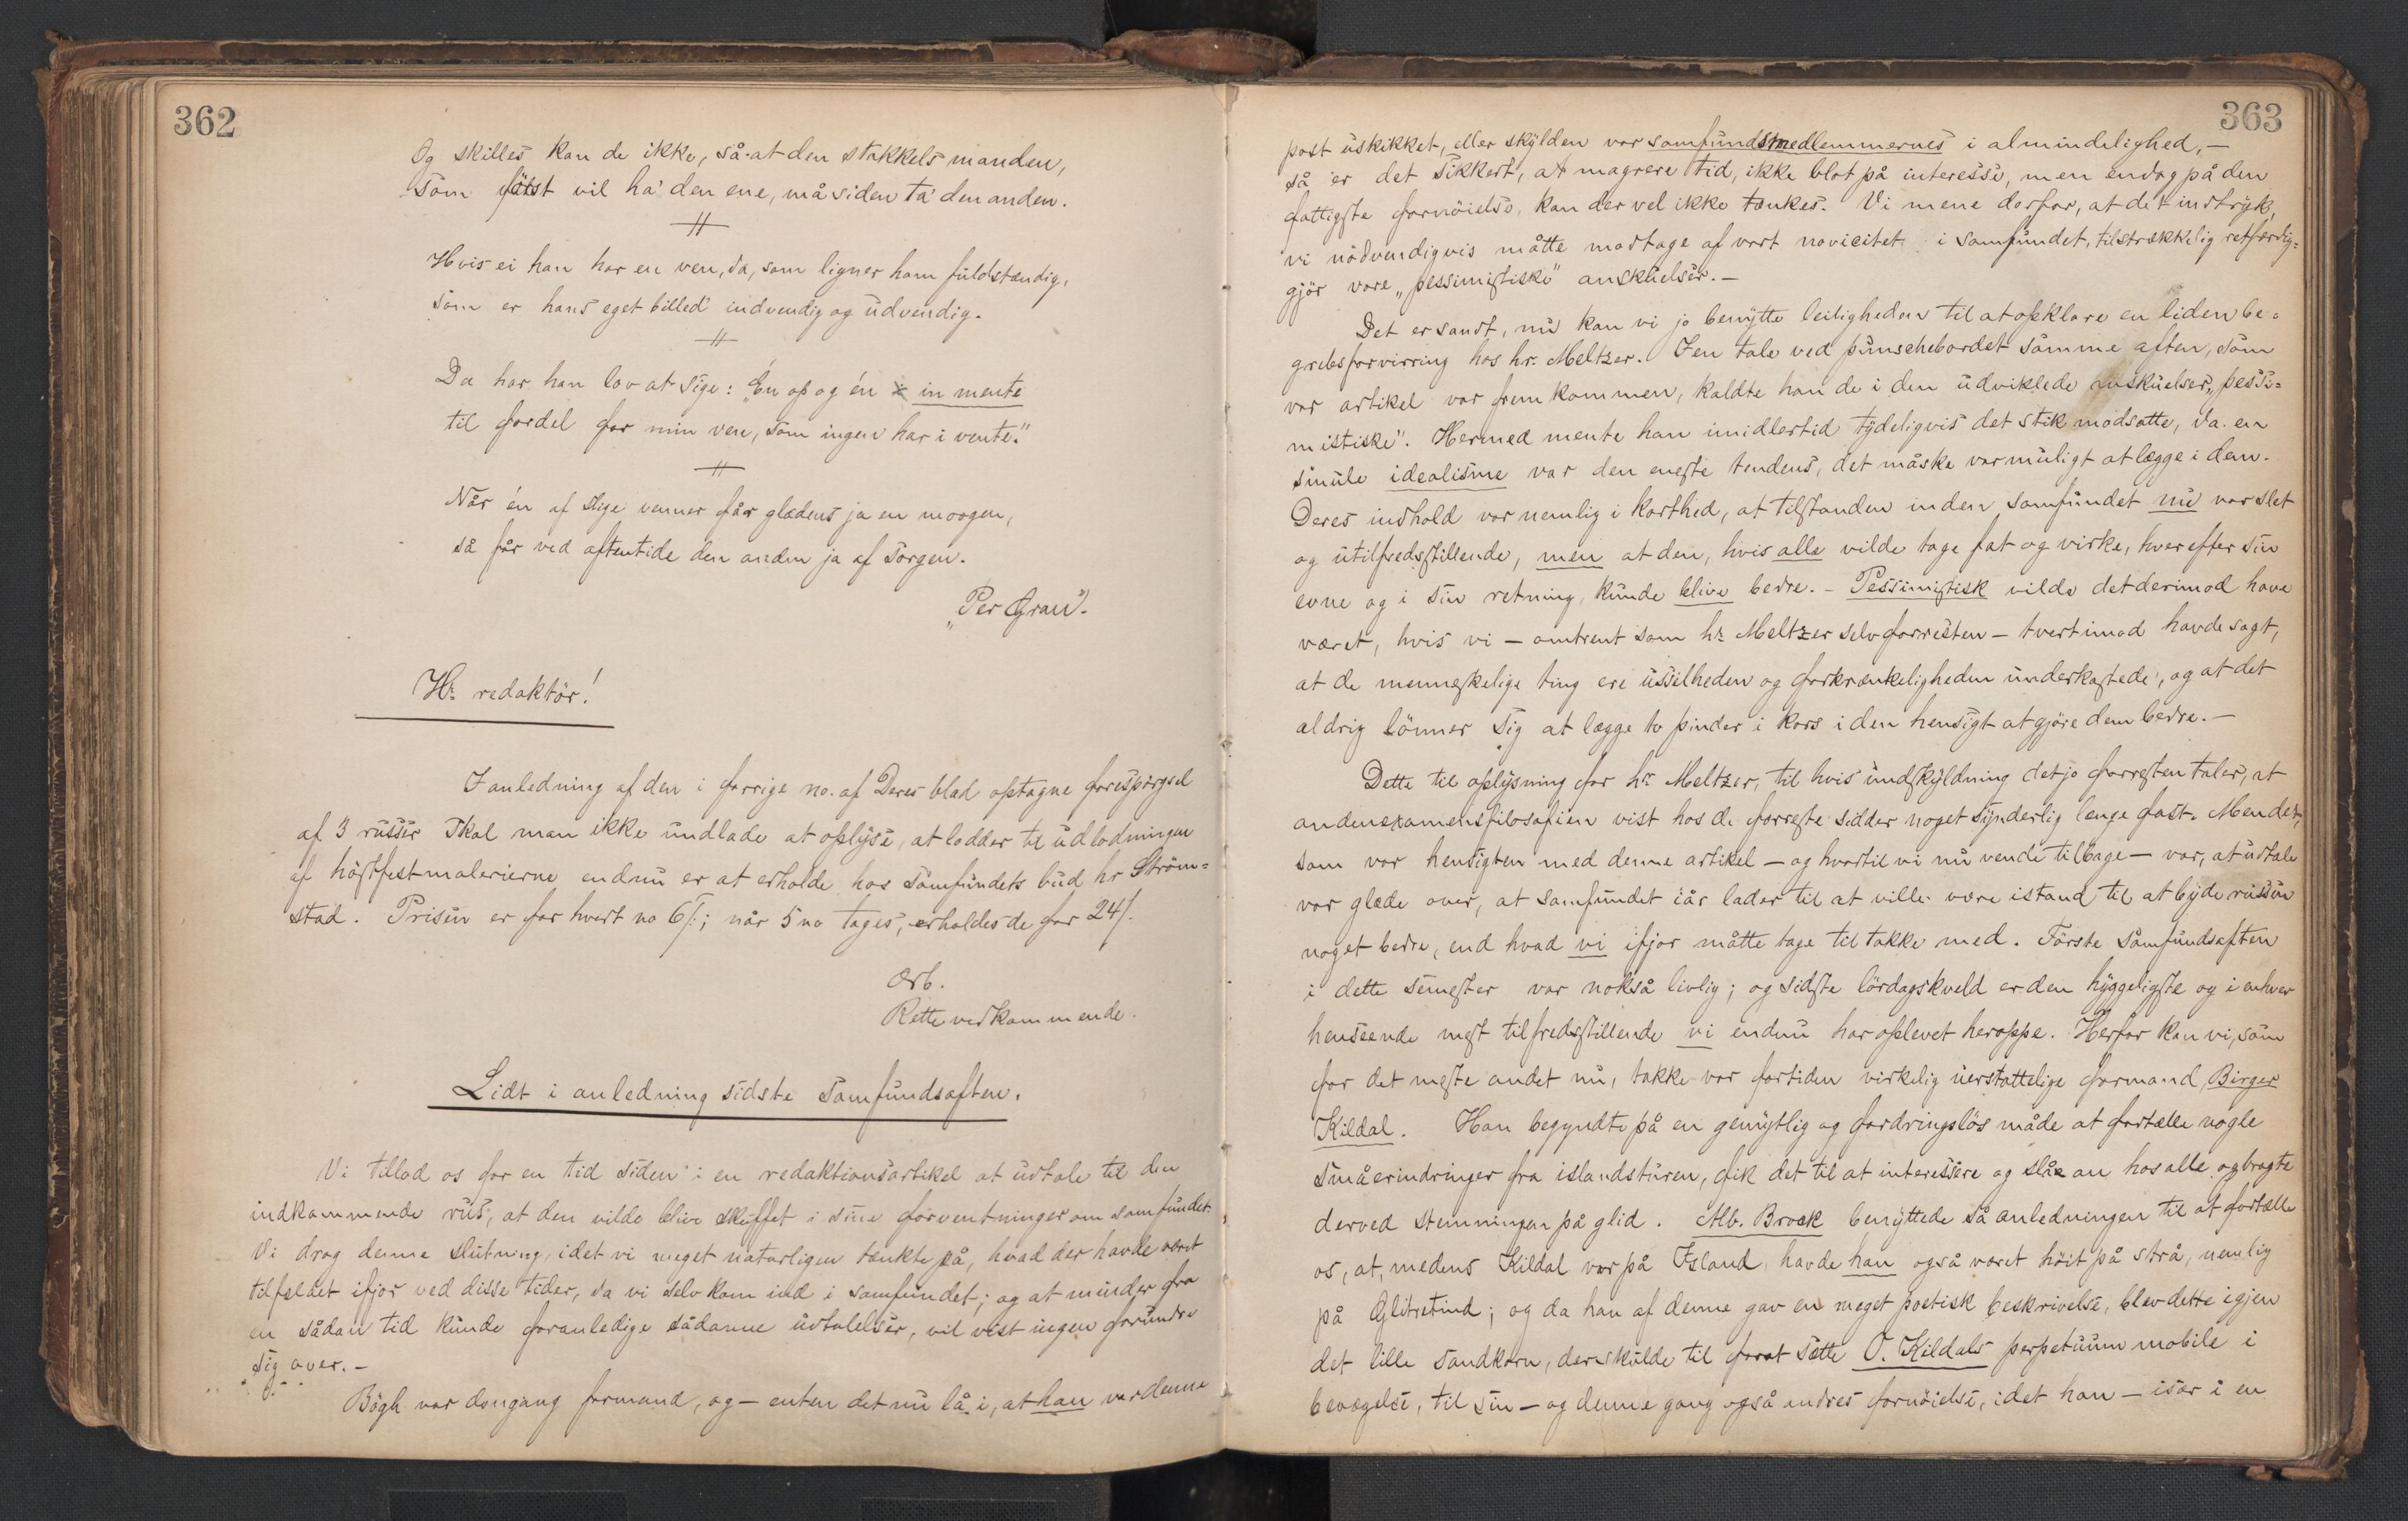 362
Og skilles kan de ikke, så at den stakkels manden,
som først vil ha' den ene, må siden ta' den anden.
Hvis ei han har en ven, da, som ligner ham fuldstændig,
som er hans eget billed indvendig og udvendig.
Da har han lov at sige: "Én op og én in mente
til fordel for min ven, som ingen har i vente."
Når én af slige venner får glædens ja en morgen,
så får ved aftentide den anden ja af sorgen.
"Per Gran".
Hr. redaktör!
I anledning af den i forrige no. af Deres blad optagne forespörgsel
af 3 russer skal man ikke undlade at oplyse, at lodder til udlodningen
af höstfestmalerierne endnu er at erholde hos samfundets bud hr Ström=
stad. Prisen er for hvert no 6 /:; når 5 no tages, erholdes de for 24 /.
Ærb.
Rette vedkommende.
Lidt i anledning sidste samfundsaften.
Vi tillod os for en tid siden i en redaktionsartikel at udtale til den
indkommende rus, at den vilde blive skuffet i sine forventninger om samfundet.
Vi drog denne slutning, idet vi meget naturligen tænkte på, hvad der havde været
tilfældet ifjor ved disse tider, da vi selv kom ind i samfundet; og at minder fra
en sådan tid kunde foranledige sådanne udtalelser, vil vist ingen forundre
sig over. —
Bögh var dengang formand, og — enten det nu lå i, at han var denne
363
post uskikket, eller skylden var samfundsmedlemmernes i almindelighed, —
så er det sikkert, at magrere tid, ikke blot på interesse, men endog på den
fattigste fornöielse, kan der vel ikke tænkes. Vi mene derfor, at det indtryk,
vi nödvendigvis måtte modtage af vort novicitet i samfundet, tilstrækkelig retfærdig=
gjör vore "pessimistiske" anskuelser. —
Det er sandt, nu kan vi jo benytte leiligheden til at opklare en liden be=
grebsforvirring hos hr. Meltzer. I en tale ved punschebordet samme aften, som
vor artikel var fremkommen, kaldte han de i den udviklede anskuelser "pessi=
mistiske". Hermed mente han imidlertid tydeligvis det stik modsatte, da en
smule idealisme var den eneste tendens, det måske var muligt at lægge i dem.
Deres indhold var nemlig i korthed, at tilstanden inden samfundet nu var slet
og utilfredsstillende, men at den, hvis alle vilde tage fat og virke, hver efter sin
evne og i sin retning, kunde blive bedre. — Pessimistisk vilde det derimod have
været, hvis vi — omtrent som hr. Meltzer selv forresten — tvertimod havde sagt,
at de menneskelige ting ere usselheden og forkrænkeligheden underkastede, og at det
aldrig lönner sig at lægge to pinder i kors i den hensigt at gjöre dem bedre. —
Dette til oplysning for hr. Meltzer, til hvis undskyldning det jo forresten taler, at
andenexamensfilosofien vist hos de færreste sidder noget synderlig længe fast. Men det,
som var hensigten med denne artikel — og hvortil vi nu vende tilbage — var, at udtale
vor glæde over, at samfundet iår lader til at ville være istand til at byde russen
noget bedre, end hvad vi ifjor måtte tage til takke med. Förste samfundsaften
i dette semester var nokså livlig; og sidste lördagskveld er den hyggeligste og i enhver
henseende mest tilfredsstillende vi endnu har oplevet heroppe. Herfor kan vi, som
for det meste andet nu, takke vor fortiden virkelig uerstattelige formand, Birger
Kildal. Han begyndte på en gemytlig og fordringslös måde at fortælle nogle
småerindringer fra islandsturen, fik det til at interessere og slå an hos alle og bragte
derved stemningen på glid. Alb. Brock benyttede så anledningen til at fortælle
os, at, medens Kildal var på Island, havde han også været höit på strå, nemlig
på Glitretind; og da han af denne gav en meget poetisk beskrivelse, blev dette igjen
det lille sandkorn, der skulde til forat sætte O. Kildals perpetuum mobile i
bevægelse, til sin — og denne gang også andres fornöielse, idet han — især i en